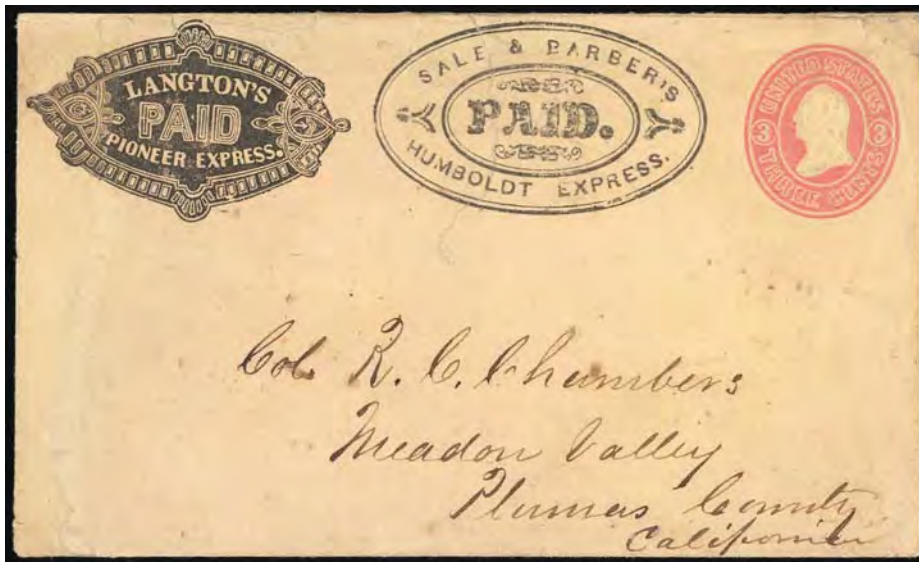 LANGTON'S
PAID
PIONEER EXPRESS.
SALE & BARBER'S
PAID.
HUMBOLDT EXPRESS.
UNITED STATES
3 3
THREE CENTS
Col. R. C. Chambers
Meadow Valley
Plumas County
California